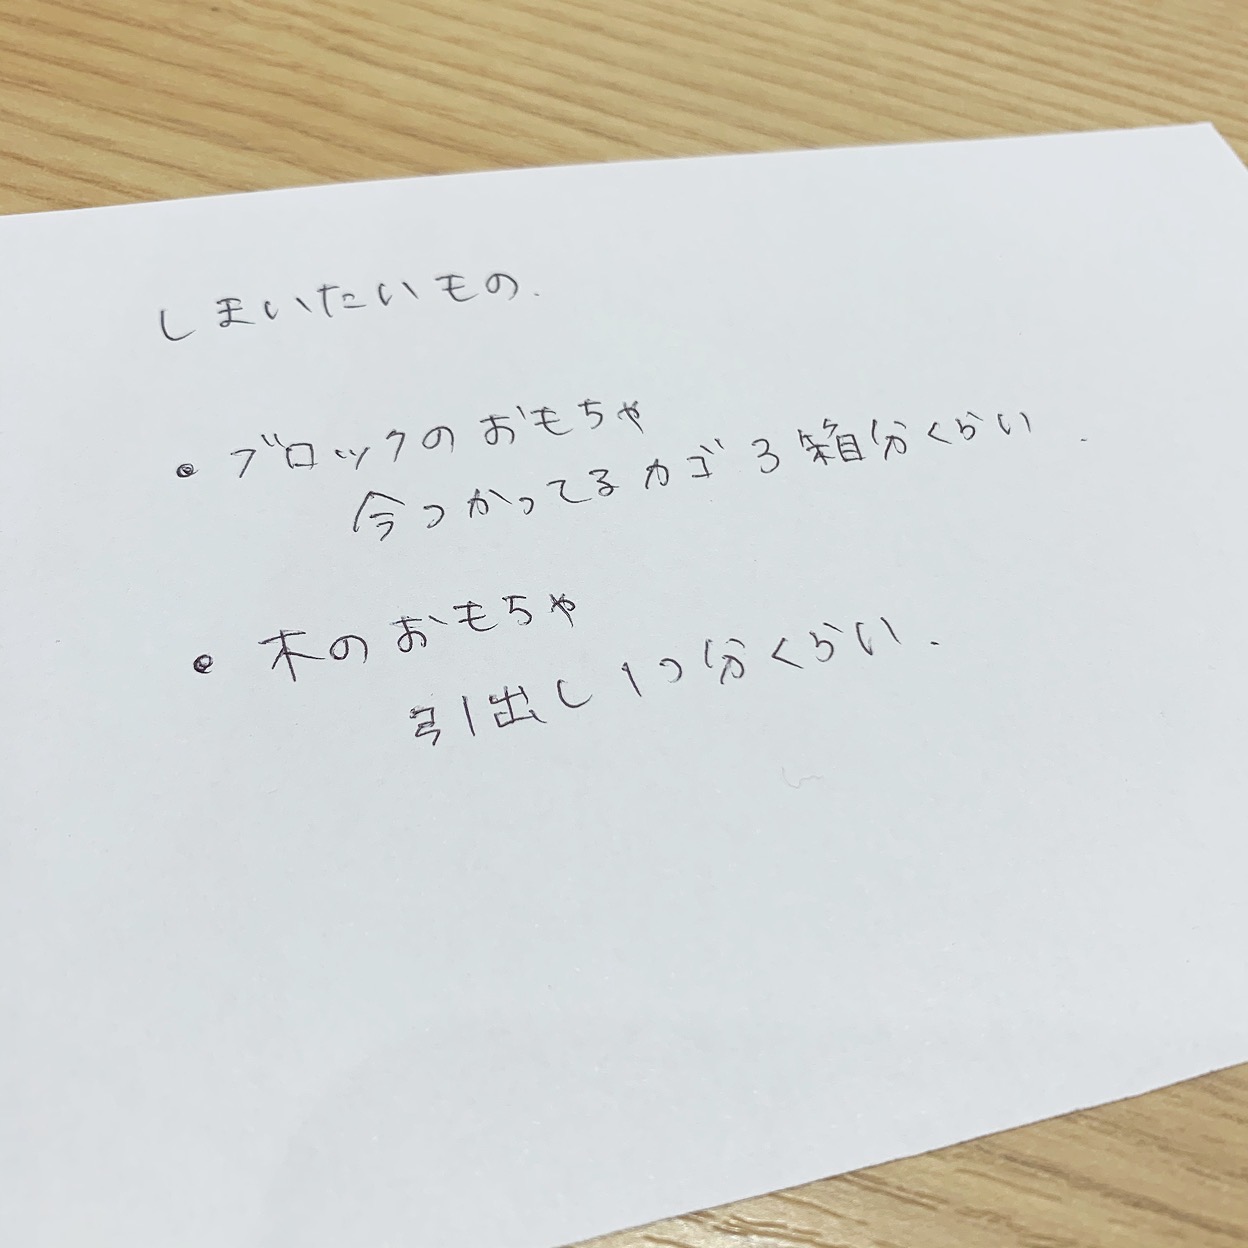 しまいたいもの.
• ブロックのおもちゃ
今つかってるカゴ3箱分くらい.
• 木のおもちゃ
引出し1つ分くらい.